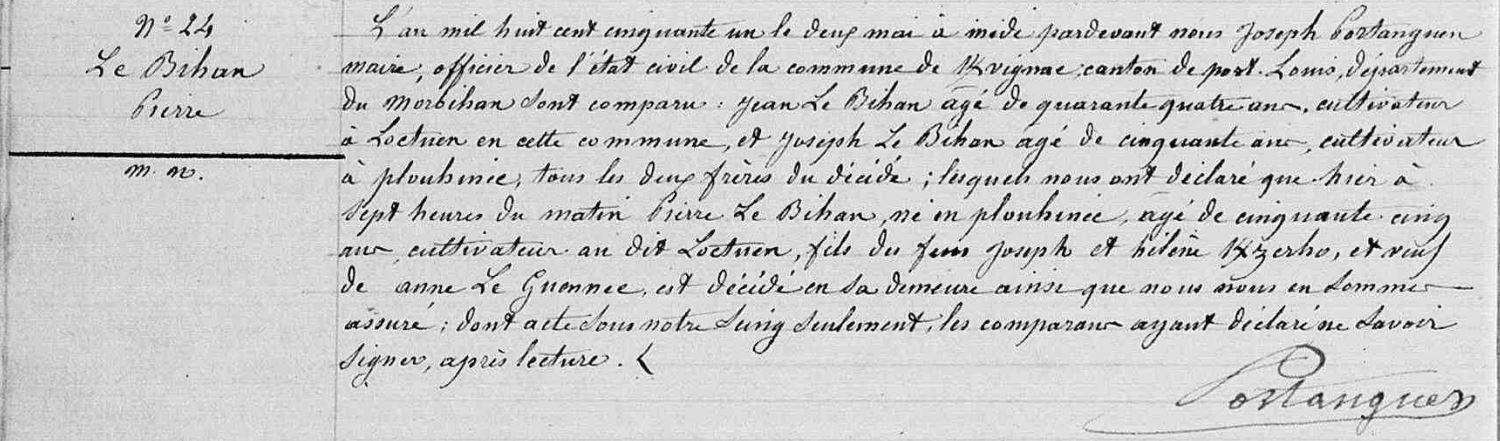 N° 24
Le Bihan
Pierre
m. n.
L'an mil huit cent cinquante un le deux mai à midi pardevant nous Joseph Portanguen
maire, officier de l'état civil de la commune de Kvignac, canton de port-Louis, département
du Morbihan sont comparu : Jean Le Bihan âgé de quarante quatre ans, cultivateur
à Loctuen en cette commune, et Joseph Le Bihan âgé de cinquante ans, cultivateur
à plouhinec, tous les deux frères du décédé ; lesquels nous ont déclaré que hier à
sept heures du matin Pierre Le Bihan, né en plouhinec, âgé de cinquante cinq
ans, cultivateur au dit Loctuen, fils du feus Joseph et hélène Kzerho, et veuf
de anne Le Guennec, est décédé en sa demeure ainsi que nous nous en sommes
assuré ; dont acte sous notre seing seulement, les comparans ayant déclaré ne savoir
signer, après lecture.
Portanguen